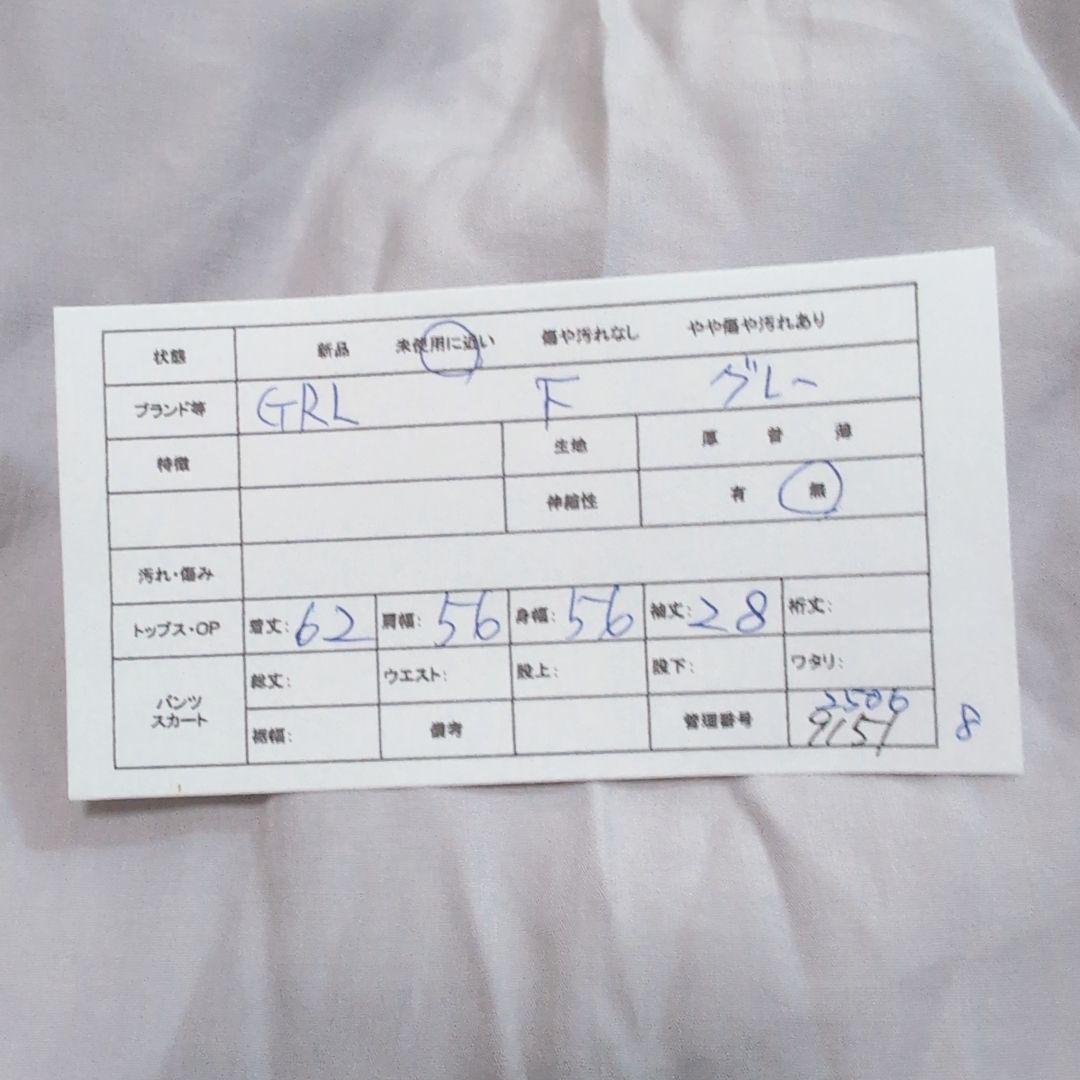 状態 新品 未使用に近い 傷や汚れなし やや傷や汚れあり
ブランド等 GRL F グレー
特徴 生地 厚 普 薄
伸縮性 有 無
汚れ・傷み
トップス・OP 着丈:62 肩幅:56 身幅:56 袖丈:28 裄丈:
パンツ スカート 総丈: ウエスト: 股上: 股下: ワタリ:
裾幅: 備考 管理番号 2506
9151 8